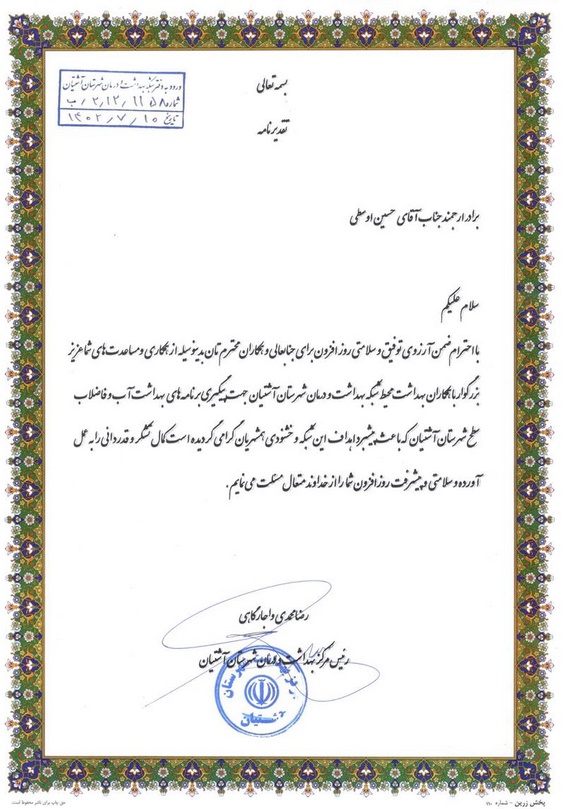 بسمه تعالی
ورود به دفتر شبکه بهداشت و درمان شهرستان آشتیان
شماره ۲/۱۲/۱۱۵۸/ب
تاریخ ۱۴۰۲/۷/۱۵
تقدیرنامه
برادر ارجمند جناب آقای حسین اوسطی
سلام علیکم
با احترام ضمن آرزوی توفیق و سلامتی روز افزون برای جنابعالی و همکاران محترم تان بدینوسیله از همکاری و مساعدت های شما عزیز
بزرگوار با همکاران بهداشت محیط شبکه بهداشت و درمان شهرستان آشتیان جهت پیگیری برنامه های بهداشت آب و فاضلاب
سطح شهرستان آشتیان که باعث پیشبرد اهداف این شبکه و خشنودی همشهریان گرامی گردیده است کمال تشکر و قدردانی را به عمل
آورده و سلامتی و پیشرفت روز افزون شما را از خداوند متعال مسئلت می نمایم.
رضا محمدی واجارگاهی
رئیس مرکز بهداشت و درمان شهرستان آشتیان
آشتیان
پخش زرین - شماره
حق چاپ برای ناشر محفوظ است